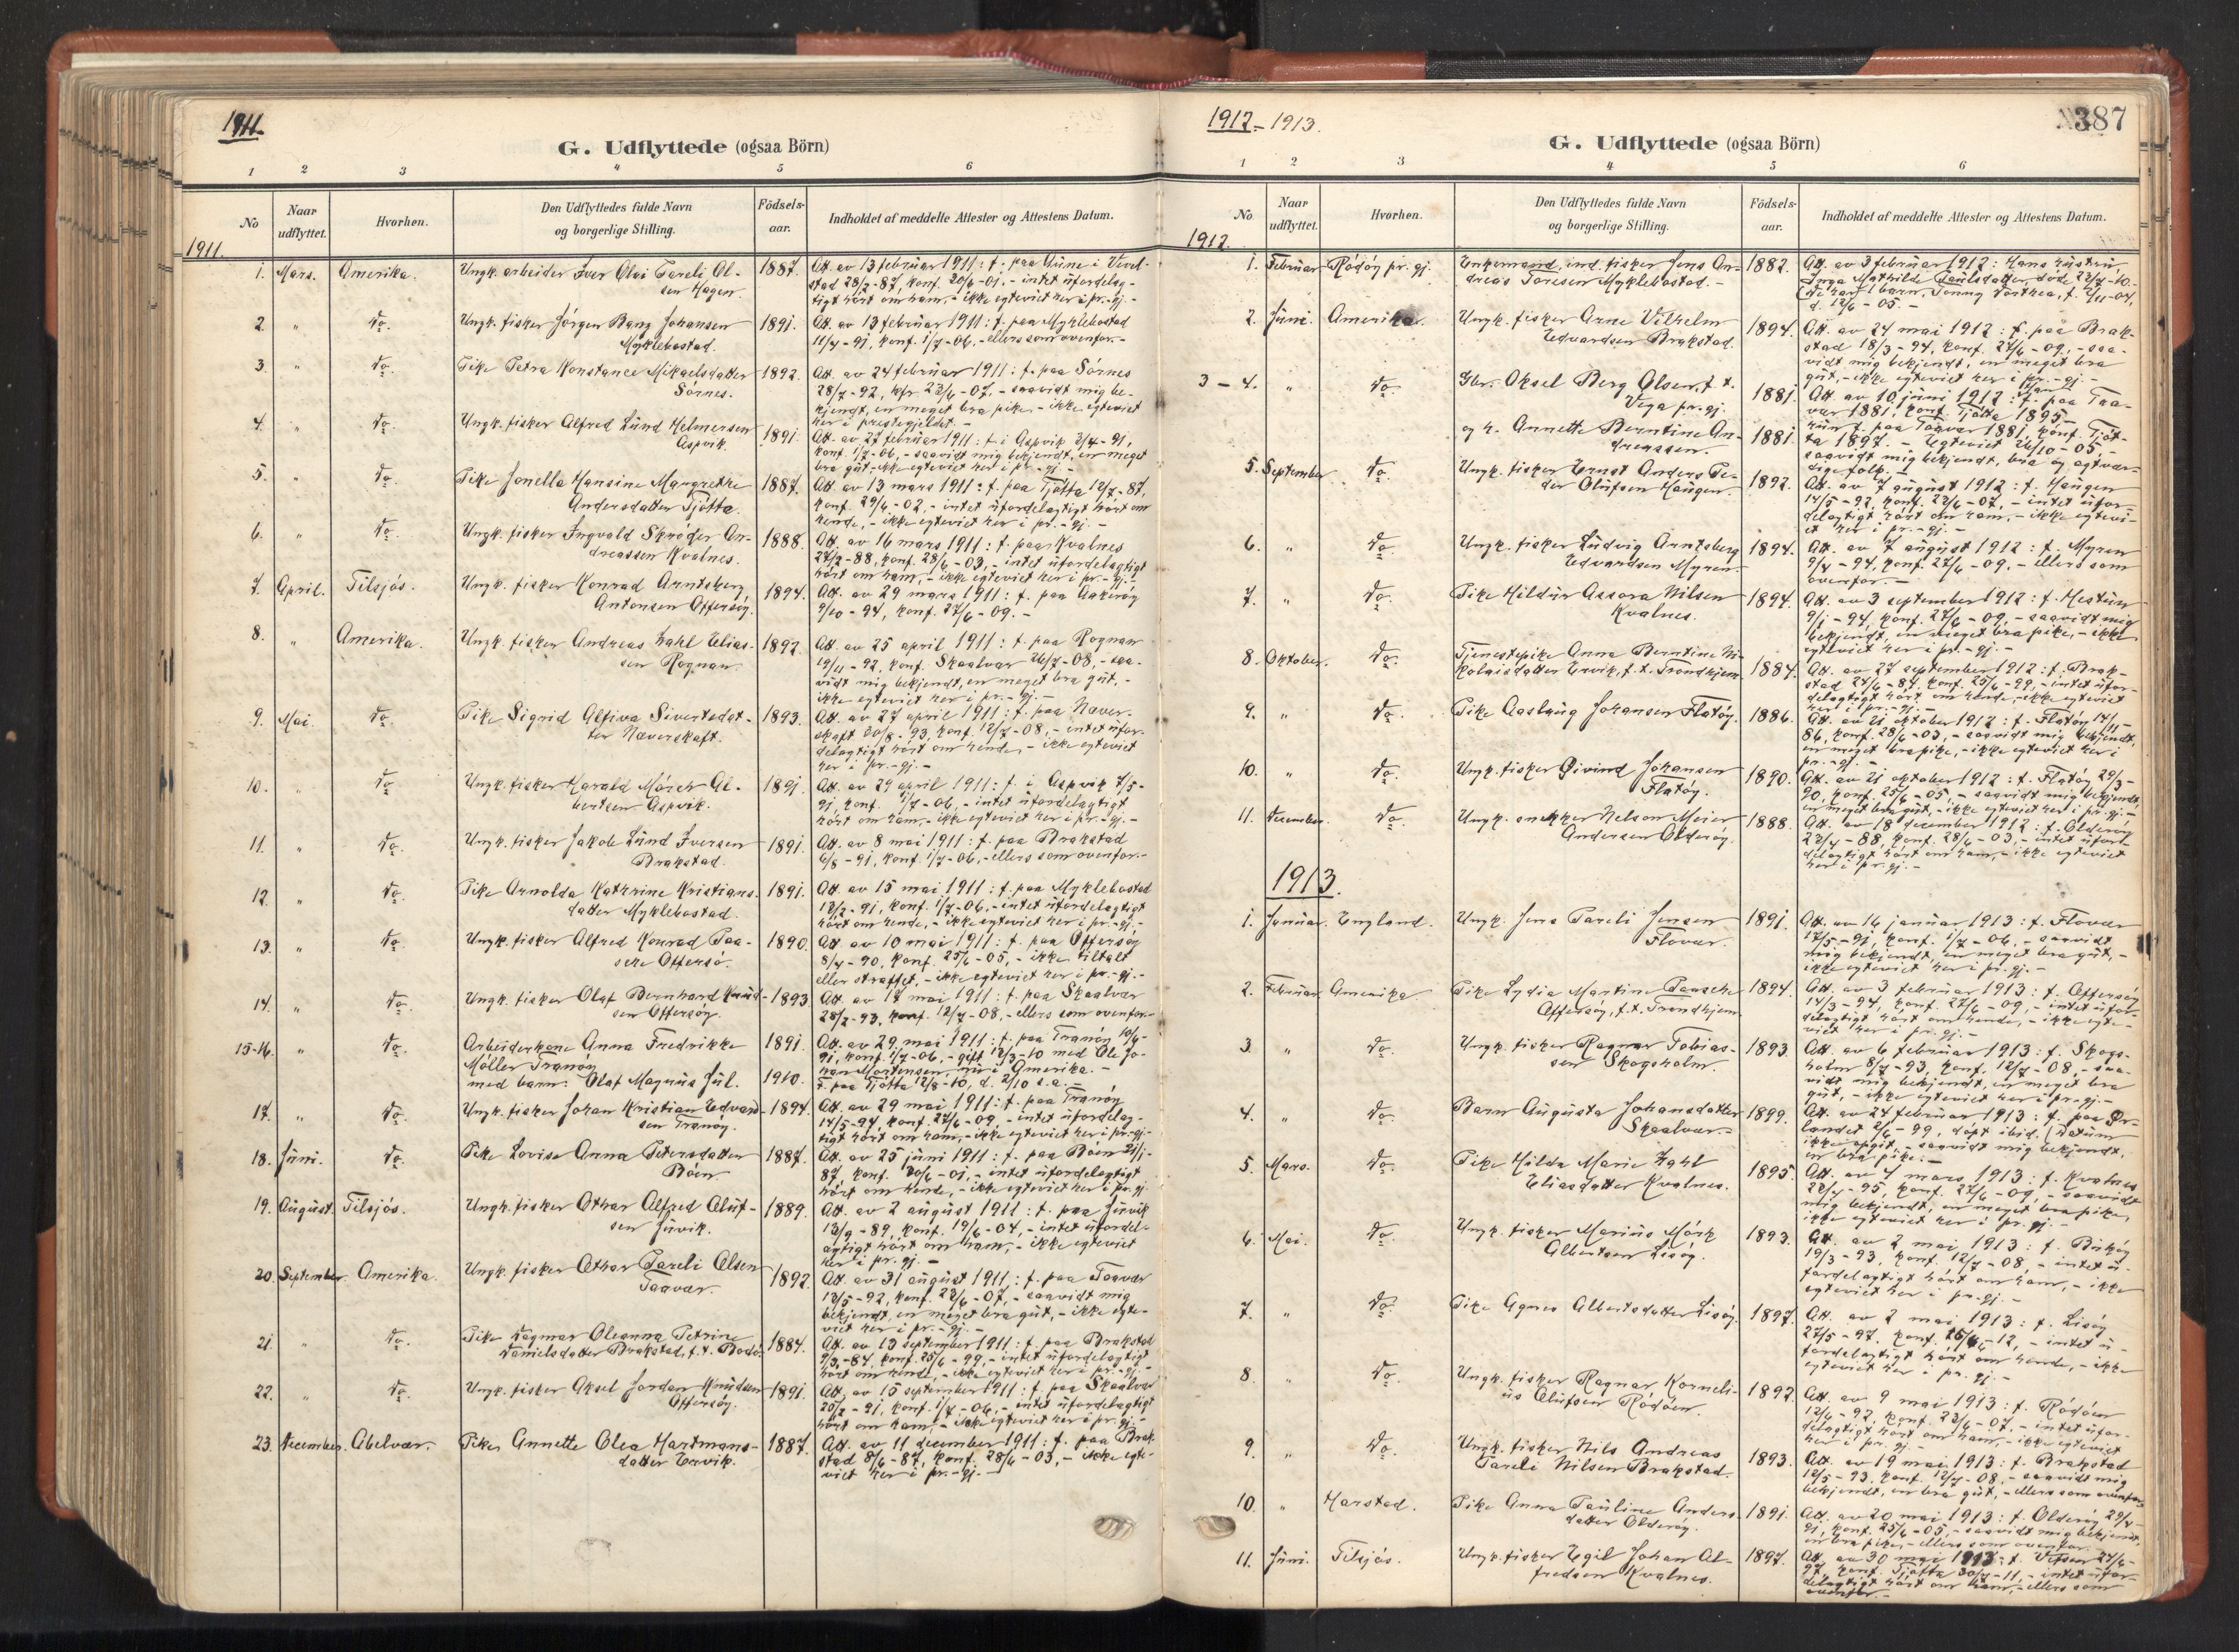 1911.
G. Udflyttede (ogsaa Börn)
1 2 3 4 5 6
No
Naar udflyttet.
Hvorhen.
Den Udflyttedes fulde Navn og borgerlige Stilling.
Födsels-aar.
Indholdet af meddelte Attester og Attestens Datum.
1911.
1. Mars. Amerika. Ungk. arbeider Iver Olai Pareli Ol-
sen Hagen. 1887. Att. av 13 februar 1911: f. paa
stad 28/2-87, konf. 30/6-01, - intet ufordelag-
tigt hört om ham, - ikke egteviet her i pr.-gj. -
2. " do. Ungk. fisker Jörgen Bang Johansen
Myklebostad. 1891. Att. av 13 februar 1911: f. paa Myklebostad
11/4-91, konf. 1/7-06, - ellers som ovenfor. -
3. " do. Pike Petra Konstance Mikaelsdatter
Sörnes. 1892. Att. av 24 februar 1911: f. paa Sörnes
28/7-92, kfr 23/6-07, - saavidt mig be-
kjendt, en meget bra pike, - ikke egteviet
her i prestegjeldet. -
4. " do. Ungk. fisker Alfred Lund Helmersen
Aspvik. 1891. Att. av 27 februar 1911: f. i Aspvik 3/4-91,
konf. 1/7-06, - saavidt mig bekjendt, en meget
bra gut, - ikke egteviet her i pr.-gj. -
5. " do. Pike Jonella Hansine Margrethe
Andersdatter Tjötta. 1887. Att. av 13 mars 1911: f. paa Tjötta 12/7-87,
konf. 29/6-02, - intet ufordelagtigt hört om
hende, - ikke egteviet her i pr.-gj. -
6. " do. Ungk. fisker Ingvald Skröder An-
dreassen Kvalnes. 1888. Att. av 16 mars 1911: f. paa Kvalnes
27/2-88, konf. 28/6-03, - intet ufordelagtigt
hört om ham, - ikke egteviet her i pr.-gj. -
7. April. Tilsjös. Ungk. fisker Konrad Arntsberg
Antonsen Offersöy. 1894. Att. av 29 mars 1911: f. paa Aakeröy
9/10-94, konf. 27/6-09. -
8. " Amerika. Ungk. fisker Andreas Zahl Elias-
sen Rognan. 1892. Att. av 25 april 1911: f. paa Rognan
19/11-92, konf. Skaalvær 26/7-08, - saa-
vidt mig bekjendt, en meget bra gut, -
ikke egteviet her i pr.-gj. -
9. Mai. do. Pike Sigrid Alfiva Sivertsdat-
ter Næverskaft. 1893. Att. av 27 april 1911: f. paa Næver-
skaft 20/8-93, konf. 12/7-08, - intet ufor-
delagtigt hört om hende, - ikke egteviet
her i pr.-gj. -
10. " do. Ungk. fisker Harald Mörch Al-
bertsen Aspvik. 1891. Att. av 29 april 1911: f. i Aspvik 7/5-
91, konf. 1/7-06, - intet ufordelagtigt
hört om ham, - ikke egteviet her i pr.-gj. -
11. " do. Ungk. fisker Jakob Lund Iversen
Brakstad. 1891. Att. av 8 mai 1911: f. paa Brakstad
6/8-91, konf. 1/7-06, - ellers som ovenfor. -
12. " do. Pike Arnolda Kathrine Kristians-
datter Myklebostad. 1891. Att. av 15 mai 1911: f. paa Myklebostad
12/2-91, konf. 1/7-06, - intet ufordelagtigt
hört om hende, - ikke egteviet her i pr.-gj. -
13. " do. Ungk. fisker Alfred Konrad Paa-
sche Offersö. 1890. Att. av 10 mai 1911: f. paa Offersöy
8/4-90, konf. 25/6-05, - ikke tiltalt
eller straffet, - ikke egteviet her i pr.-gj. -
14. " do. Ungk. fisker Olaf Bernhard Knud-
sen Offersöy. 1893. Att. av 17 mai 1911: f. paa Skaalvær
28/2-93, konf. 12/7-08, - ellers som ovenfor. -
15-16. " do. Arbeiderkone Anna Fredrikke
Möller Tranöy
med barn: Olaf Magnus Jul. 1891. 1910. Att. av 29 mai 1911: f. paa Tranöy 10/4-
91, konf. 1/7-06, - gift 12/3-10 med Ole Jo-
han Mortensen, nu i Amerika. -
F. paa Tjötta 12/8-10, d. 2/10 s.a. -
17. " do. Ungk. fisker Johan Kristian Edvard-
sen Tranöy. 1894. Att. av 29 mai 1911: f. paa Tranöy
14/5-94, konf. 27/6-09, - intet ufordelag-
tigt hört om ham, - ikke egteviet her i pr.-gj. -
18. Juni. do. Pike Lovise Anna Petersdatter
Böen. 1887. Att. av 25 juni 1911: f. paa Böen 21/1-
87, konf. 30/6-01, - intet ufordelagtigt
hört om hende, - ikke egteviet her i pr.-gj.
19. August. Tilsjös. Ungk. fisker Othar Alfred Oluf-
sen Jurvik. 1889. Att. av 2 august 1911: f. paa Jurvik
13/9-89, konf. 19/6-04, - intet ufordel-
agtigt hört om ham, - ikke egteviet
her i pr.-gj. -
20. September. Amerika. Ungk. fisker Othar Pareli Olsen
Taavær. 1892. Att. av 31 august 1911: f. paa Toavær
13/5-92, konf. 23/6-07, - saavidt mig
bekjendt, en meget bra gut, - ikke egte-
viet her i pr.-gj. -
21. " do. Pike Dagmar Oleanna Petrine
Danielsdatter Brakstad, f.t. Bodö. 1884. Att. av 13 september 1911: f. paa Brakstad
9/3-84, konf. 25/6-99, - intet ufordelagtigt
hört om hende, - ikke egteviet her i pr.-gj. -
22. " do. Ungk. fisker Aksel Jordan Knudsen
Offersöy. 1891. Att. av 15 september 1911: f. paa Skaalvær
20/2-91, konf. 1/7-06, - intet ufordelagtigt
hört om ham, - ikke egteviet her i pr.-gj. -
23. December. Abelvær. Pike Annette Olea Hartmans-
datter Ervik. 1887. Att. av 11 december 1911: f. paa Brak-
stad 8/6-87, konf. 28/6-03, - ikke egte-
viet her i pr.-gj. -
1912-1913.
387
G. Udflyttede (ogsaa Börn)
1 2 3 4 5 6
No
Naar udflyttet.
Hvorhen.
Den Udflyttedes fulde Navn og borgerlige Stilling.
Födsels-aar.
Indholdet af meddelte Attester og Attestens Datum.
1912.
1. Februar Rödöy pr. gj. Enkemand, ind. fisker Jens An-
dreas Toresen Myklebostad. - 1882. Att. av 3 februar 1912: Hans hustru
Inga Mathilde Paulsdatter, död 22/7-10. -
De har 1 barn, Jenny Dorthea, f. 2/11-04,
d. 12/6-05. -
2. Juni. Amerika. Ungk. fisker Arne Vilhelm
Edvardsen Brakstad. 1894. Att. av 24 mai 1912: f. paa Brak-
stad 18/3-94, konf. 27/6-09, - saa-
vidt mig bekjendt, en meget bra
gut, - ikke egteviet her i pr.-gj. -
3-4. " do. Gbr. Oksel Berg Olsen, f.t.
Vega pr. gj. 1881. Att. av 10 juni 1912: Han f. paa Taa-
vær 1881, konf. Tjötta 1895 -
og h. Annette Berntine An-
dreassen. 1881. hun f. paa Toavær 1881, konf. Tjöt-
ta 1897. - Egteviet 26/10-05, -
saavidt mig bekjendt, bra og agtvær-
dige folk. -
5. September do. Ungk. fisker Ernst Anders Pe-
der Olufsen Haugen. 1892. Att. av 7 august 1912: f. Haugen
14/5-92, konf. 23/6-07, - intet ufor-
delagtigt hört om ham, - ikke egtevi-
et her i pr.-gj. -
6. " do. Ungk. fisker Ludvig Arntsberg
Edvardsen Myren. 1894. Att. av 7 august 1912: f. Myren
9/4-94, konf. 27/6-09, - ellers som
ovenfor. -
7. " do. Pike Hildur Assora Nilsen
Kvalnes. 1894. Att. av 3 september 1912: f. Hestun
9/1-94, konf. 27/6-09, - saavidt mig
bekjendt, en meget bra pike, - ikke
egteviet her i pr.-gj. -
8. Oktober. do. Tjenestepike Anna Berntine Ni-
kolaisdatter Ervik, f.t. Trondhjem 1884. Att. av 27 september 1912: f. Brak-
stad 24/6-84, konf. 25/6-99, - intet ufor-
delagtigt hört om hende, - ikke egteviet
her i pr.-gj. -
9. " do. Pike Aaslaug Johansen Flatöy. 1886. Att. av 21 oktober 1912: f. Flatöy 14/11-
86, konf. 28/6-03, - saavidt mig bekjendt,
en meget bra pike, - ikke egteviet her i
pr.-gj. -
10. " do. Ungk. fisker Øivind Johansen
Flatöy. 1890. Att. av 21 oktober 1912: f. Flatöy 29/3-
90, konf. 25/6-05 - saavidt mig bekjendt,
en meget bra gut, - ikke egteviet her i pr.gj. -
11. December. do. Ungk. snekker Nelson Meier
Andersen Olderöy. 1888. Att. av 18 december 1912: f. Olderöy
22/4-88, konf. 28/6-03, - intet ufor-
delagtigt hört om ham, - ikke egteviet
her i pr.gj. -
1913.
1. Januar. England. Ungk. Jens Pareli Jensen
Flovær. 1891. Att. av 16 januar 1913: f. Flovær
17/5-91, konf. 1/7-06, - saavidt
mig bekjendt, en meget bra gut, -
ikke egteviet her i pr.gj. -
2. Februar. Amerika. Pike Lydia Martine Paasche
Offersöy, f.t. Trondhjem 1894. Att. av 3 februar 1913: f. Offersöy
14/3-94, konf. 27/6-09, - intet ufor-
delagtigt hört om hende, - ikke egte-
viet her i pr.gj. -
3. " do. Ungk. fisker Ragnar Tobias-
sen Skogsholm. 1893. Att. av 6 februar 1913: f. Skogs-
holm 8/7-93, konf. 12/7-08, - saa-
vidt mig bekjendt, en meget bra
gut, - ikke egteviet her i pr.gj. -
4. " do. Barn Augusta Johansdatter
Skaalvær. - 1899. Att. av 24 februar 1913: f. paa Ør-
landet 2/6-99, döpt ibid. (Datum
ikke opgit, - saavidt mig bekjendt,
en bra pike. -
5. Mars. do. Pike Hilda Marie Zahl
Eliasdatter Kvalnes. 1895. Att. av 7 mars 1913: f. Kvalnes
22/4-95, konf. 27/6-09, - saavidt
mig bekjendt, en meget bra pike,
ikke egteviet her i pr. gj. -
6. Mai. do. Ungk. fisker Marius Mörk
Albertsen Lisöy. 1893. Att. av 2 mai 1913: f. Buköy
19/3-93, konf. 12/7-08, - intet u-
fordelagtigt hört om ham, - ikke
egteviet her i pr.gj. -
7. " do. Pike Agnes Albertsdatter Lisöy. 1897. Att. av 2 mai 1913: f. Lisöy
27/5-97, konf. -12, - intet u-
fordelagtigt hört om hende, - ikke
egteviet her i pr. gj. -
8. " do. Ungk. fisker Ragnar Korneli-
us Olufsen Rödöen. 1892. Att. av 9 mai 1913: f. Rödöen
12/6-92, konf. 23/6-07, - intet ufor-
delagtigt hört om ham, - ikke egteviet
her i pr. gj. -
9. " do. Ungk. fisker Nils Andreas
Pareli Nilsen Brakstad. 1893. Att. av 19 mai 1913: f. Brakstad
12/5-93, konf. 12/7-08, - saavidt mig
bekjendt, en bra gut, - ellers som ovenfor.
10. " Harstad. Pike Anna Pauline Anders-
datter Olderöy. 1891. Att. av 20 mai 1913: f. Olderöy 29/4-
91, konf. 25/6-05, - saavidt mig bekjendt,
en bra pike, - ellers som ovenfor. -
11. Juni. Tilsjös. Ungk. fisker Egil Johan Al-
fredsen Kvalnes. 1897. Att. av 30 mai 1913: f. Vefsen 27/6-
97, konf. Tjötta 30/7-11, - intet ufor-
delagtigt hört om ham, - ellers som
ovenfor. -